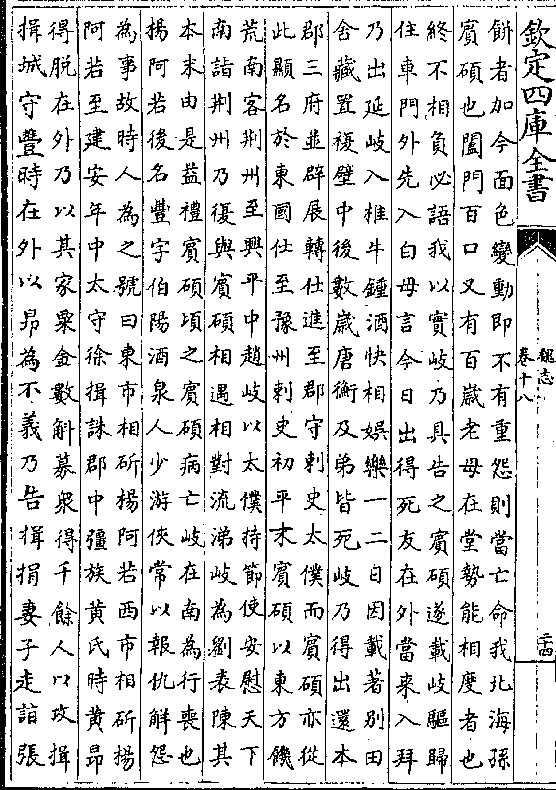 欽定四庫全書
魏志
卷十八
二十四
餅者加今面色變動即不有重怨則當亡命我北海孫
賓碩也闔門百口又有百歲老母在堂勢能相度者也
終不相負必語我以實岐乃具告之賓碩遂載岐驅歸
住車門外先入白母言今日出得死友在外當来入拜
乃出延岐入椎牛鍾酒快相娛樂一二日因載著别田
舍藏置複壁中後數歲唐衡及弟皆死岐乃得出還本
郡三府並辟展轉仕進至郡守刺史太僕而賓碩亦從
此顯名於東國仕至豫州刺史初平末賓碩以東方饑
荒南客荆州至興平中趙岐以太僕持節使安慰天下
南詣荆州乃復與賓碩相遇相對流涕岐為劉表陳其
本末由是益禮賓碩頃之賓碩病亡岐在南為行喪也
楊阿若後名豐字伯陽酒泉人少游俠常以報仇解怨
為事故時人為之號曰東市相斫楊阿若西市相斫楊
阿若至建安年中太守徐揖誅郡中彊族黄氏時黄昂
得脱在外乃以其家粟金數斛募衆得千餘人以攻揖
揖城守豐時在外以昂為不義乃告揖捐妻子走詣張